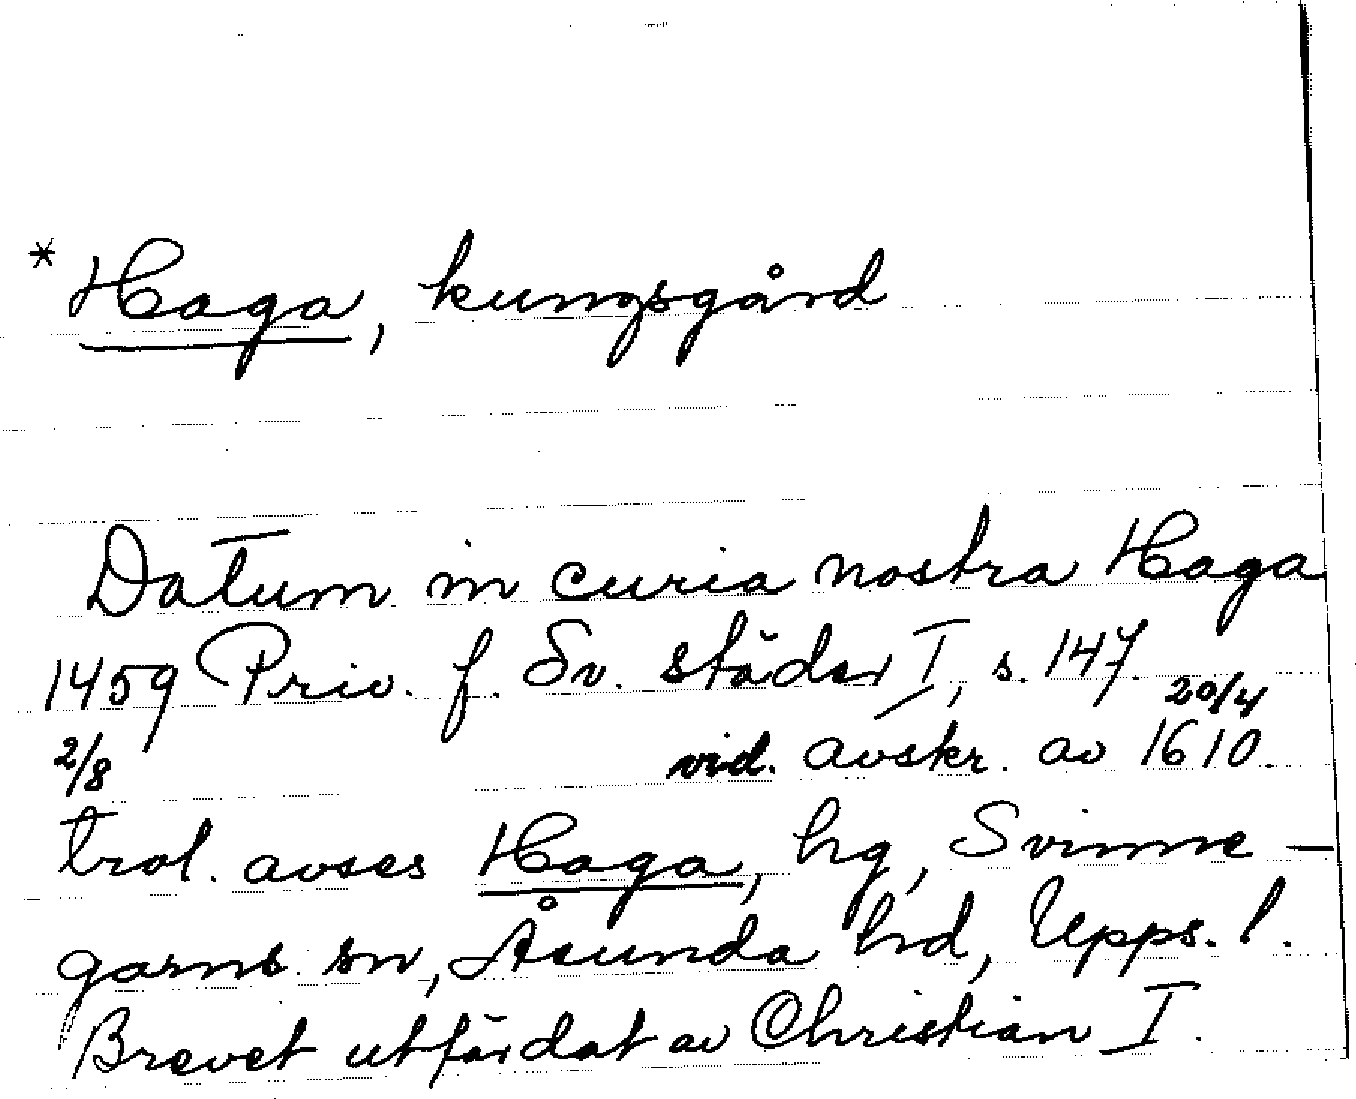 * Haga, kungsgård
Datum in curia nostra Haga
1459 Priv. f. Sv. städer I, s. 147.
2/8 vid. avskr. av 20/4 1610
trol. avses Haga, hg, Svinne-
garns sn, Åsunda hd, Upps. l.
Brevet utfärdat av Christian I.